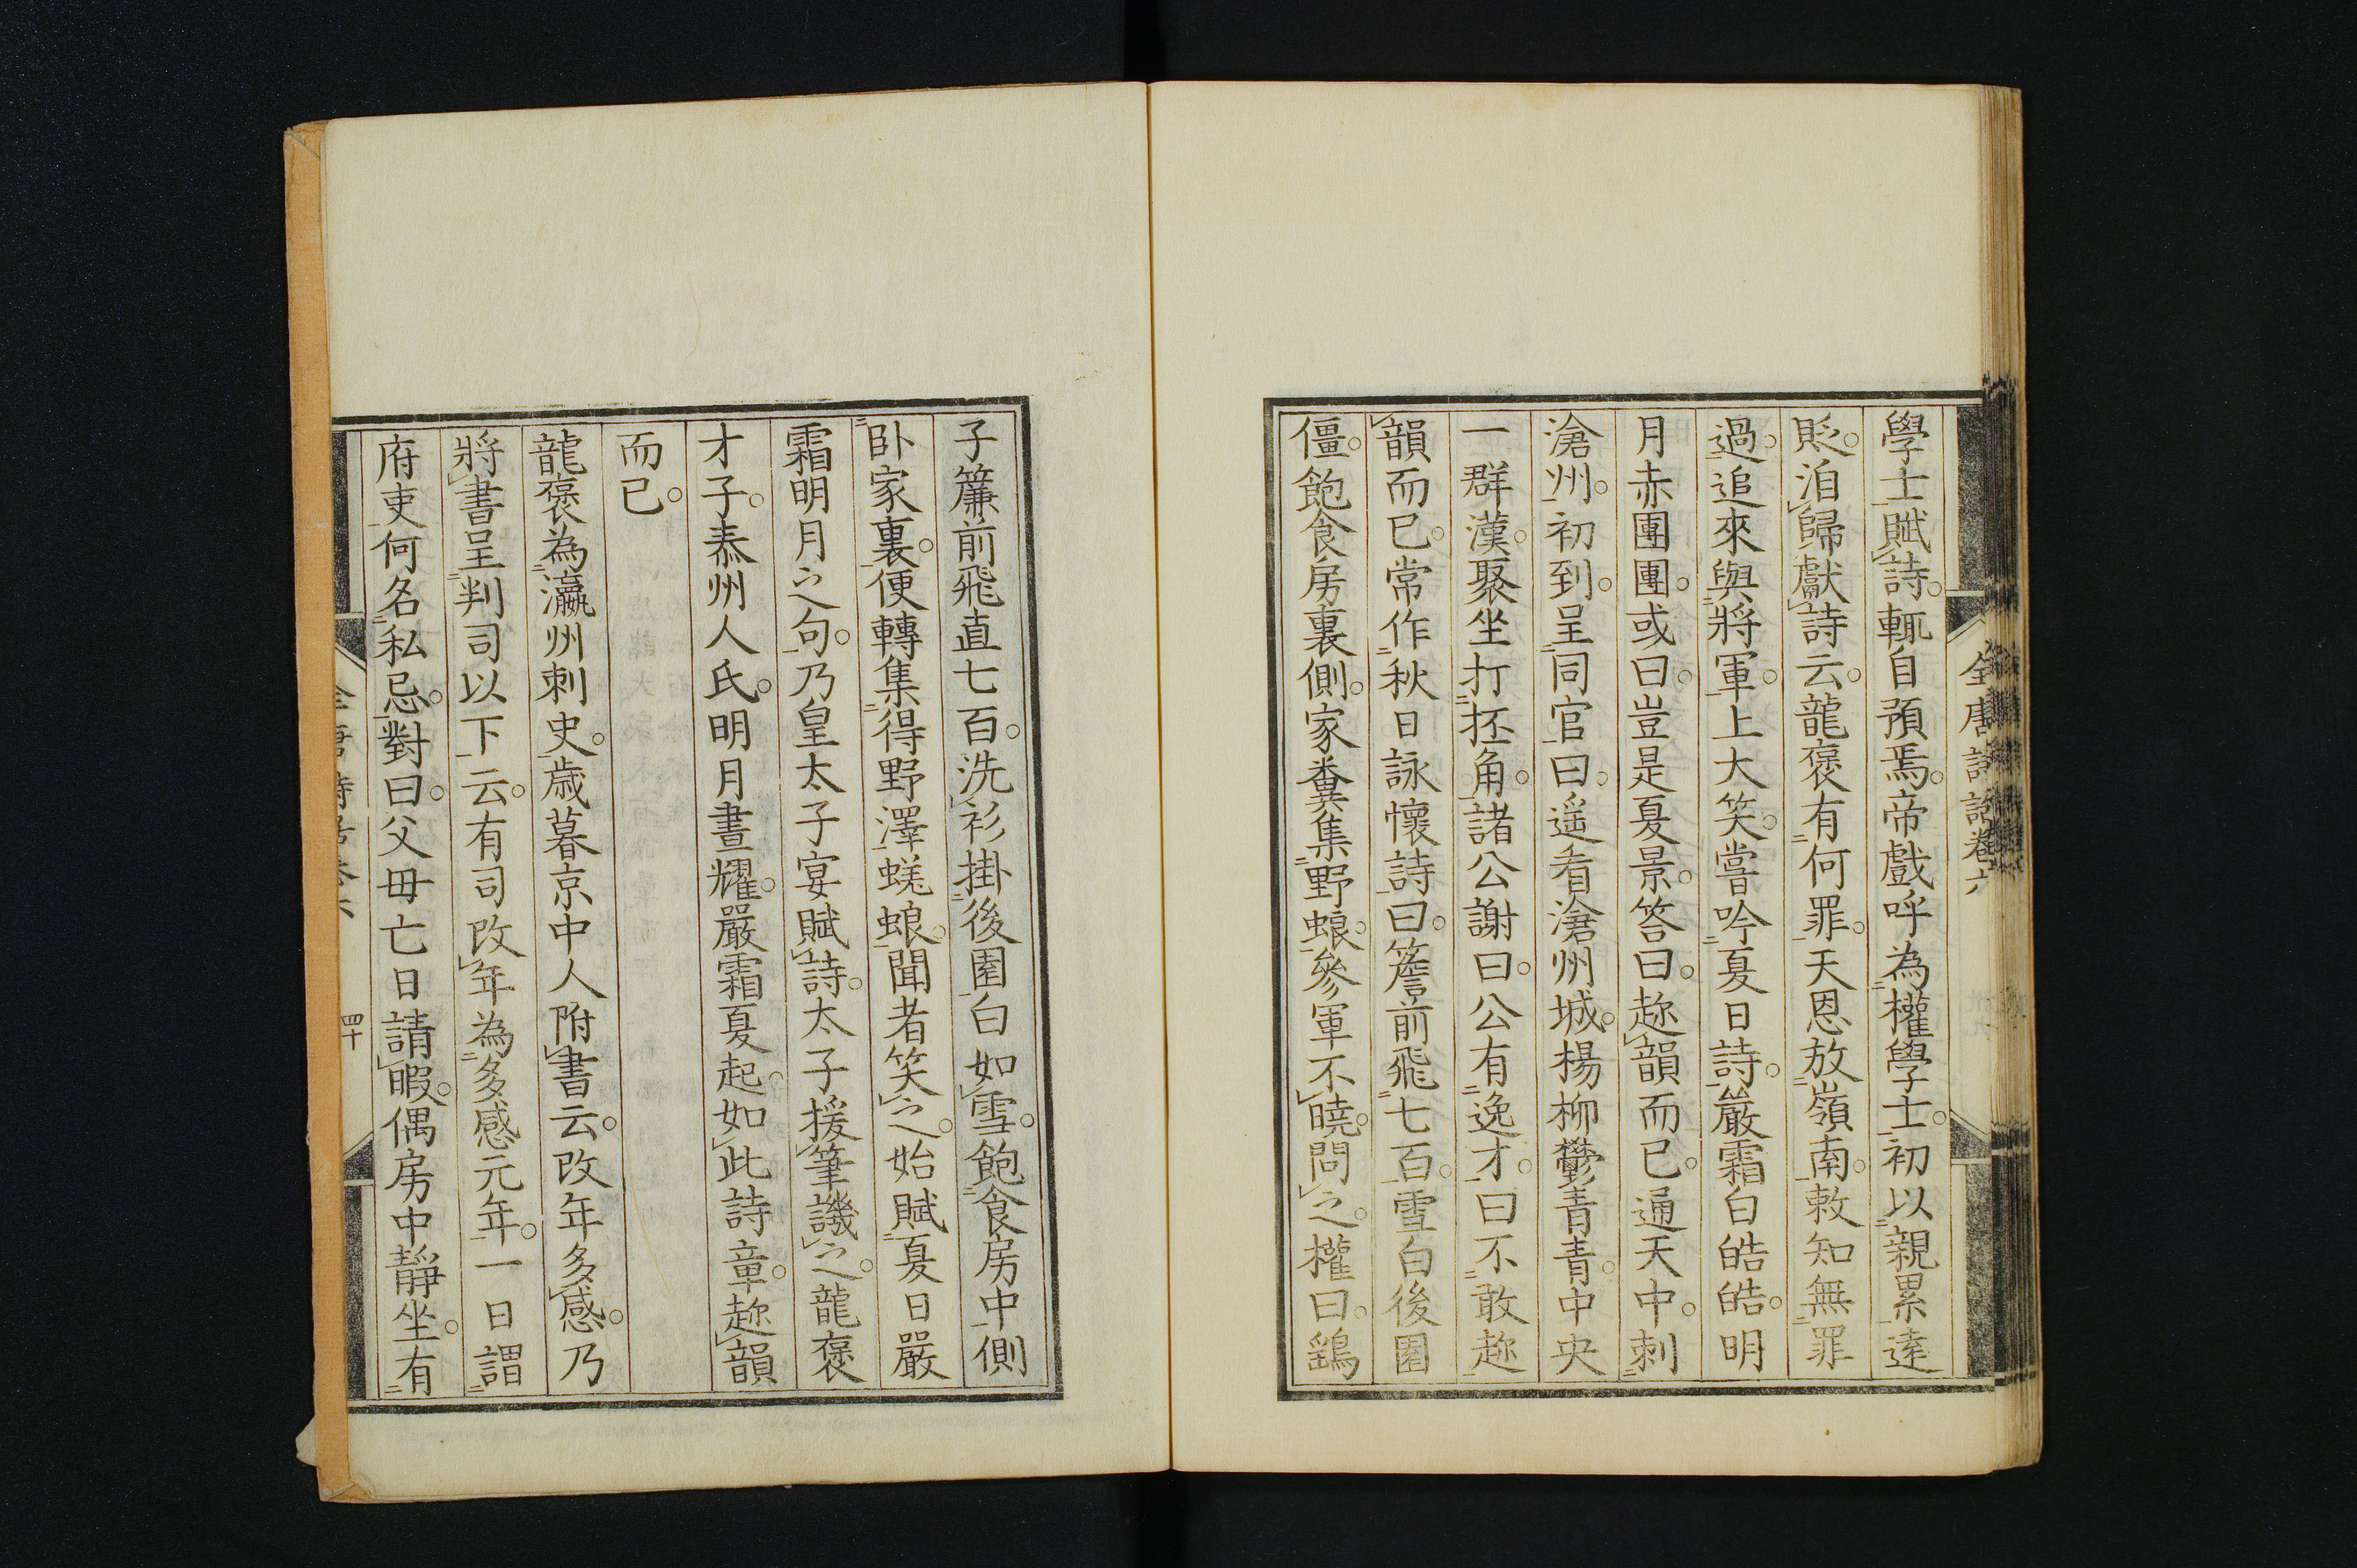 學士賦詩輒自預焉帝戲呼為權學士初以親累遠
貶洎歸獻詩云龍褒有何罪天恩放嶺南敕知無罪
過追來與將軍上大笑嘗吟夏日詩嚴霜白皓皓明
月赤團團或曰豈是夏景答曰趂韻而已通天中刺
滄州初到呈同官曰遥看滄州城楊柳鬱青青中央
一群漢聚坐打抔角諸公謝曰公有逸才曰不敢趂
韻而已常作秋日詠懷詩曰簷前飛七百雪白後園
僵飽食房裏側家糞集野蜋參軍不曉問之權曰鷂
全唐詩話卷六
子簾前飛直七百洗衫掛後園白如雪飽食房中側
卧家裏便轉集得野澤蜣蜋聞者笑之始賦夏日嚴
霜明月之句乃皇太子宴賦詩太子援筆譏之龍褒
才子泰州人氏明月晝耀嚴霜夏起如此詩章趂韻
而已
龍褒為瀛州刺史歲暮京中人附書云改年多感乃
將書呈判司以下云有司改年為多感元年一日謂
府吏何名私忌對曰父母亡日請暇偶房中靜坐有
全唐詩話卷六
四十